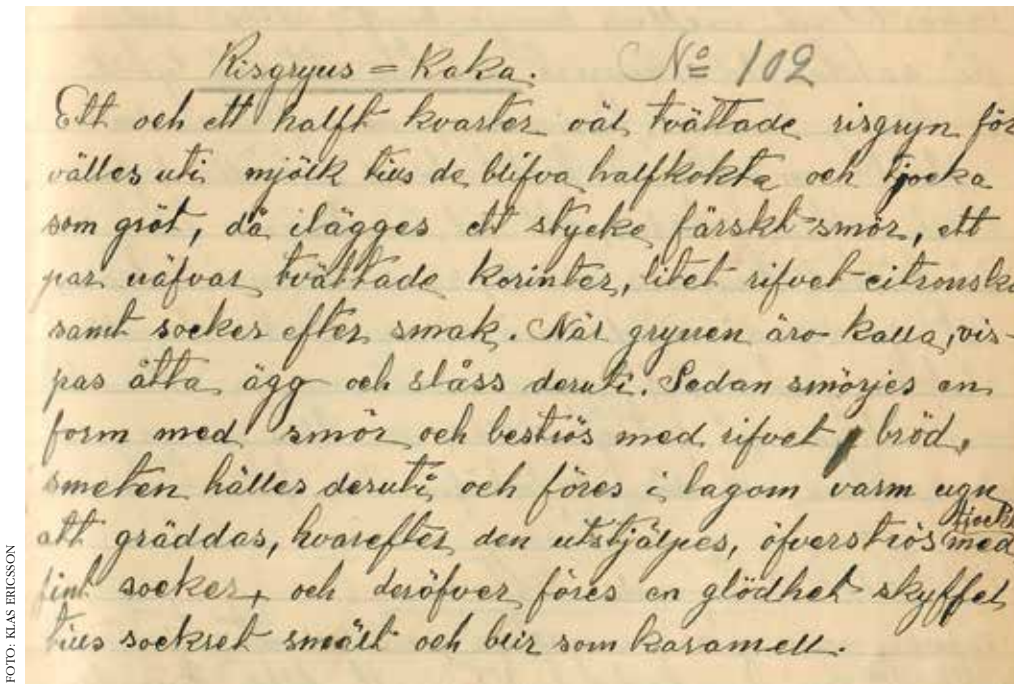 Risgryns=Kaka. No 102
Ett och ett halft kvarter väl tvättade risgryn för
välles uti mjölk tills de blifva halfkokta och tjocka
som gröt, då ilägges ett stycke färskt smör, ett
par näfvar tvättade korinter, litet rifvet citronska
samt socker efter smak. När grynen äro kalla, vis-
pas åtta ägg och slåss deruti. Sedan smörjes en
form med smör och beströs med rifvet bröd,
smeten hälles deruti, och föres i lagom varm ugn
tjockt
att gräddas, hvarefter den utstjälpes, öfverströs med
fint socker, och deröfver föres en glödhet skyffel
tills sockret smält och blir som karamell.
FOTO: KLAS ERICSSON